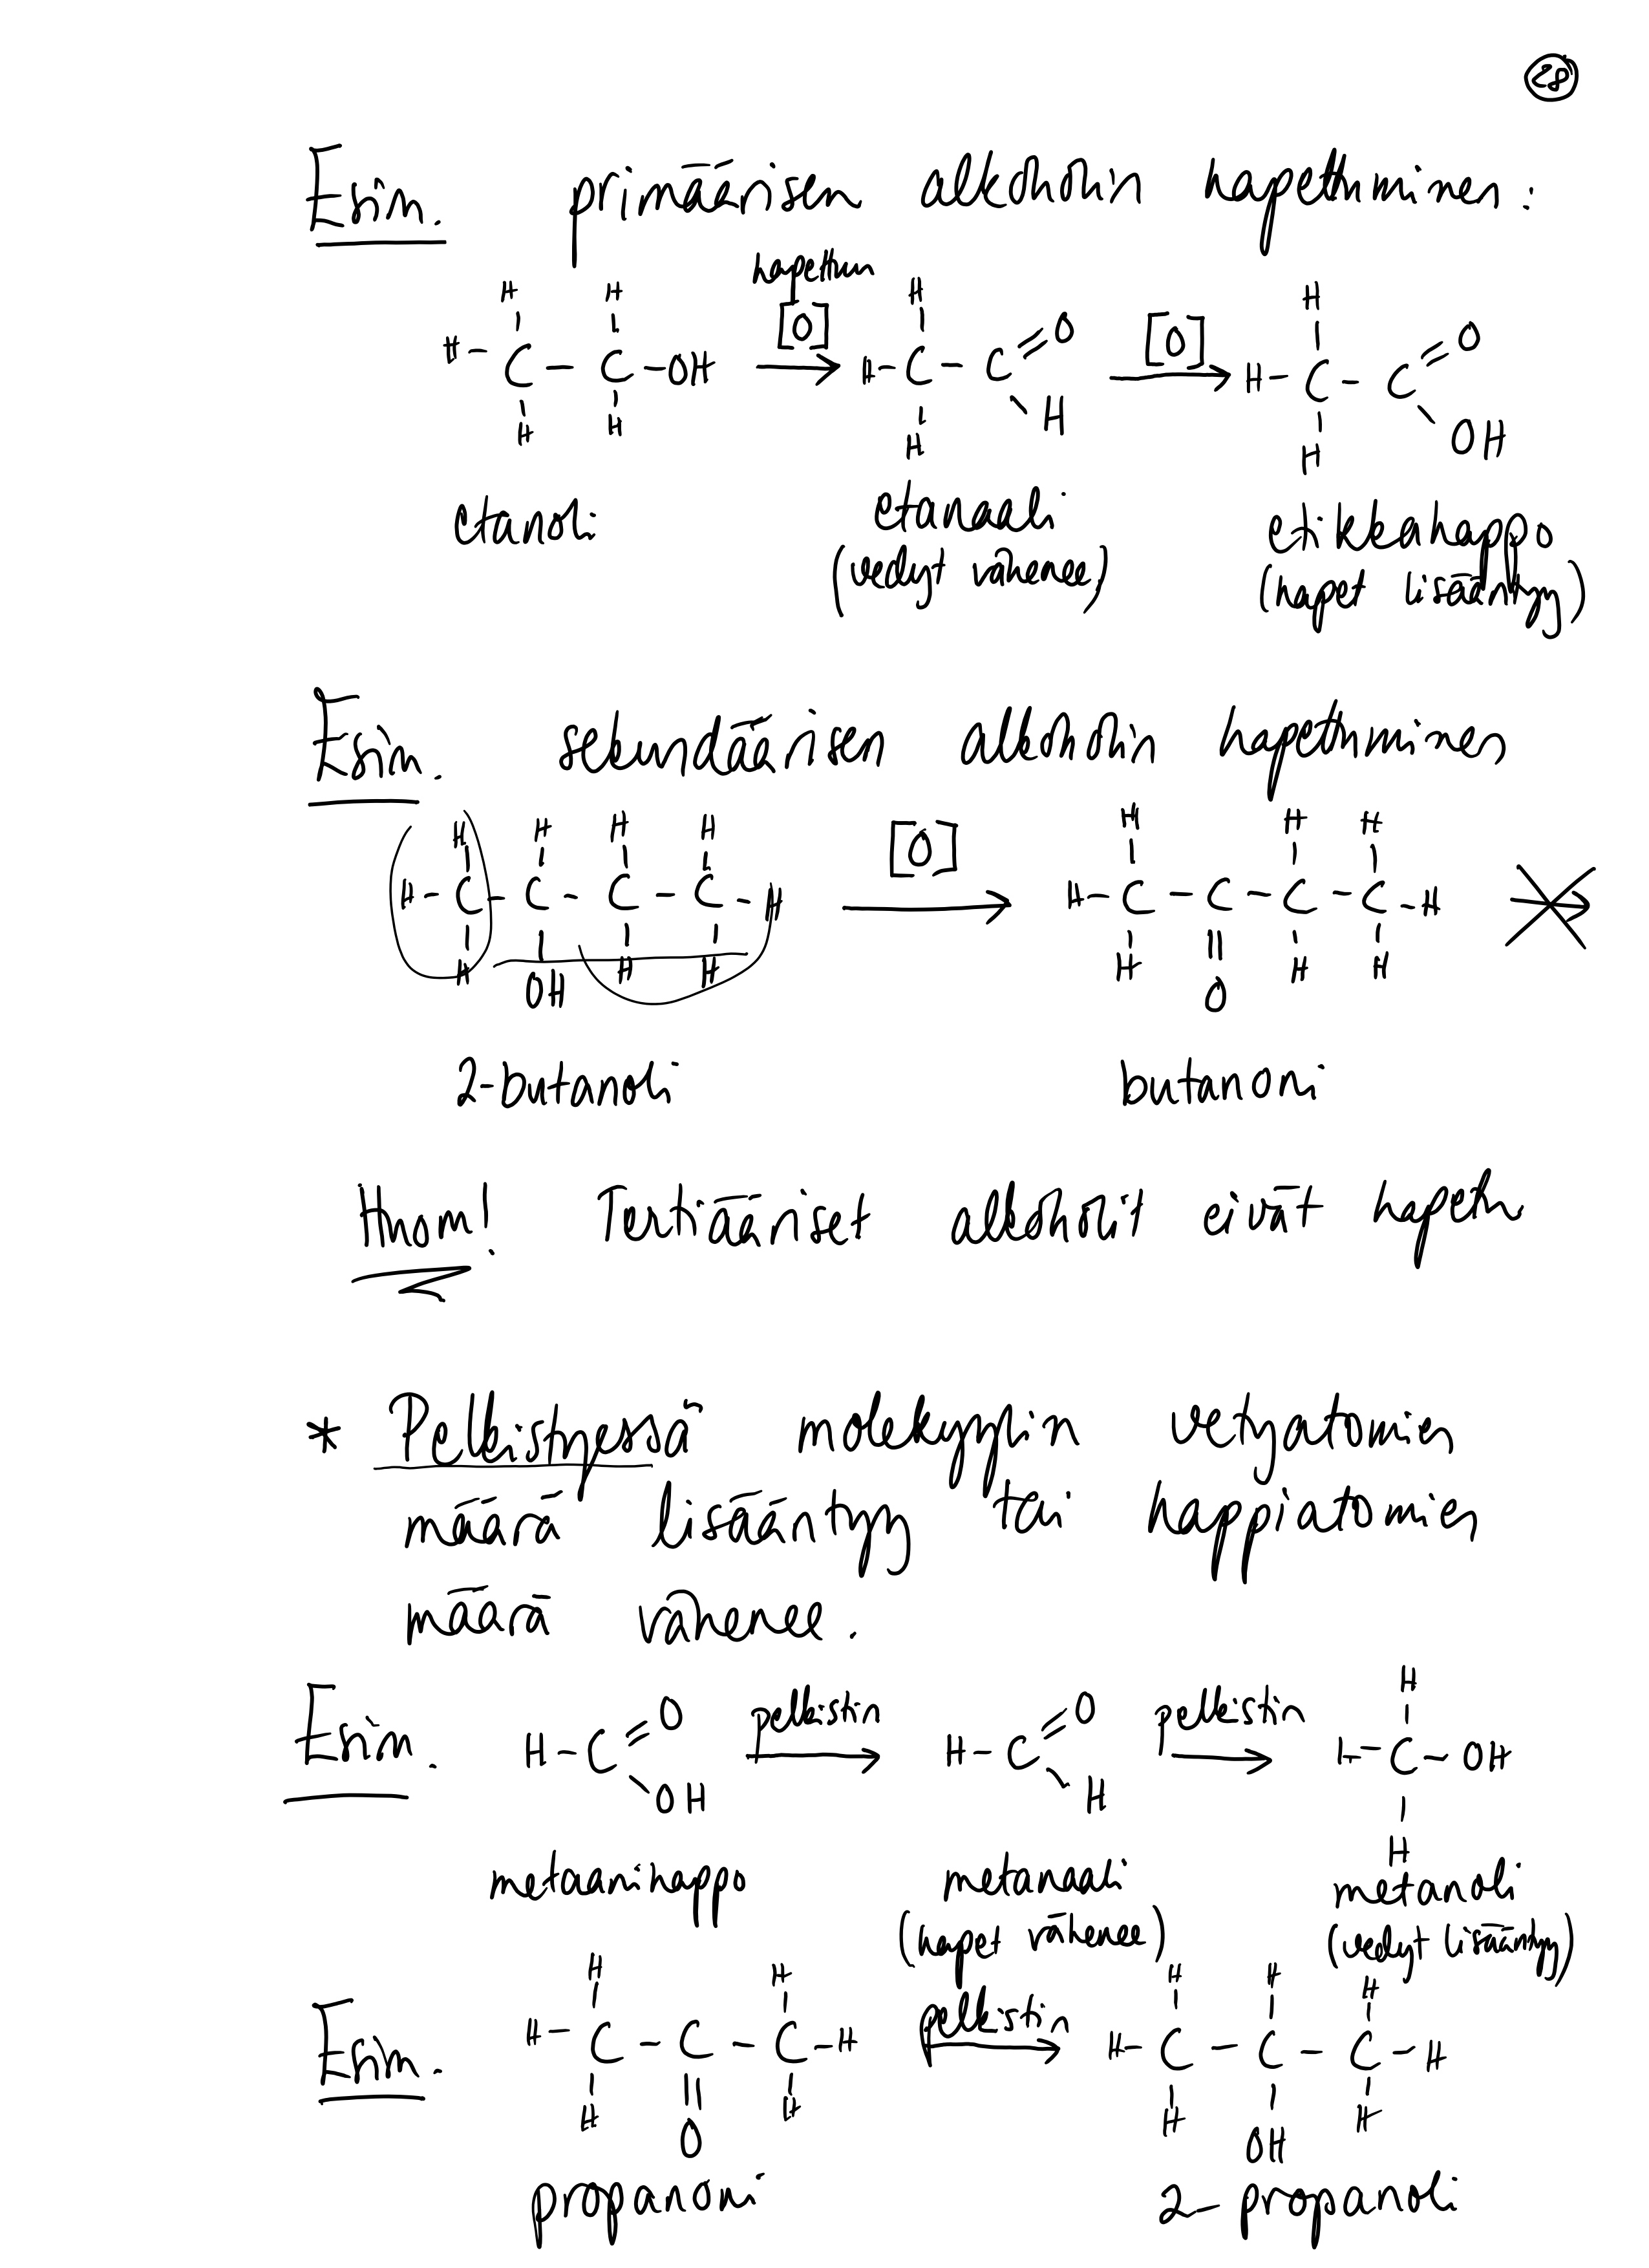 28
Esim. primäärisen alkoholin hapettuminen:
hapettun
H H [O] H [O] H
H - C - C - OH → H - C - C = O → H - C - C = O
H H H H H OH
etanoli etanaali etikkahappo
(vedyt vähenee) (hapet lisääntyy)
Esim. sekundäärisen alkoholin hapettuminen
H H H H [O] H H H
H - C - C - C - C - H → H - C - C - C - C - H →
H OH H H H O H H
2-butanoli butanoni
Huom! Tertiääriset alkoholit eivät hapetu
* Pelkistyessä molekyylin vetyatomien
määrä lisääntyy tai happiatomien
määrä vähenee.
Esim. H - C = O pelkistin → H - C = O pelkistin → H
OH H H - C - OH
H
metaanihappo metanaali metanoli
(hapet vähenee) (vedyt lisääntyy)
H H pelkistin H H H
Esim. H - C - C - C - H → H - C - C - C - H
H O H H OH H
propanoni 2-propanoli